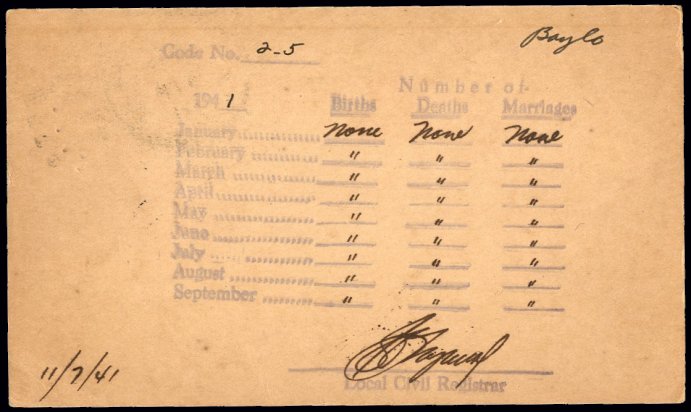 Baylo
Code No. 2-5
Number of
1941 Births Deaths Marriages
January None None None
February " " "
March " " "
April " " "
May " " "
June " " "
July " " "
August " " "
September " " "
Local Civil Registrar
11/7/41